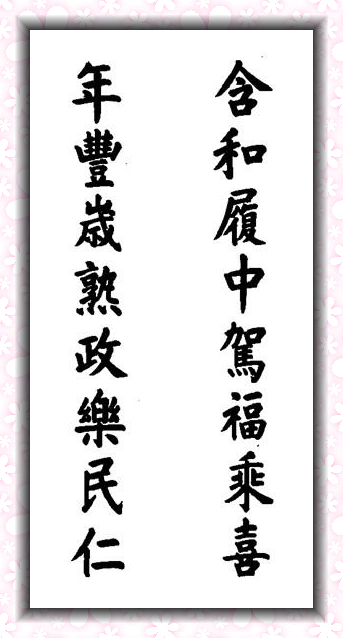 含和履中駕福乘喜
年豐歲熟政樂民仁